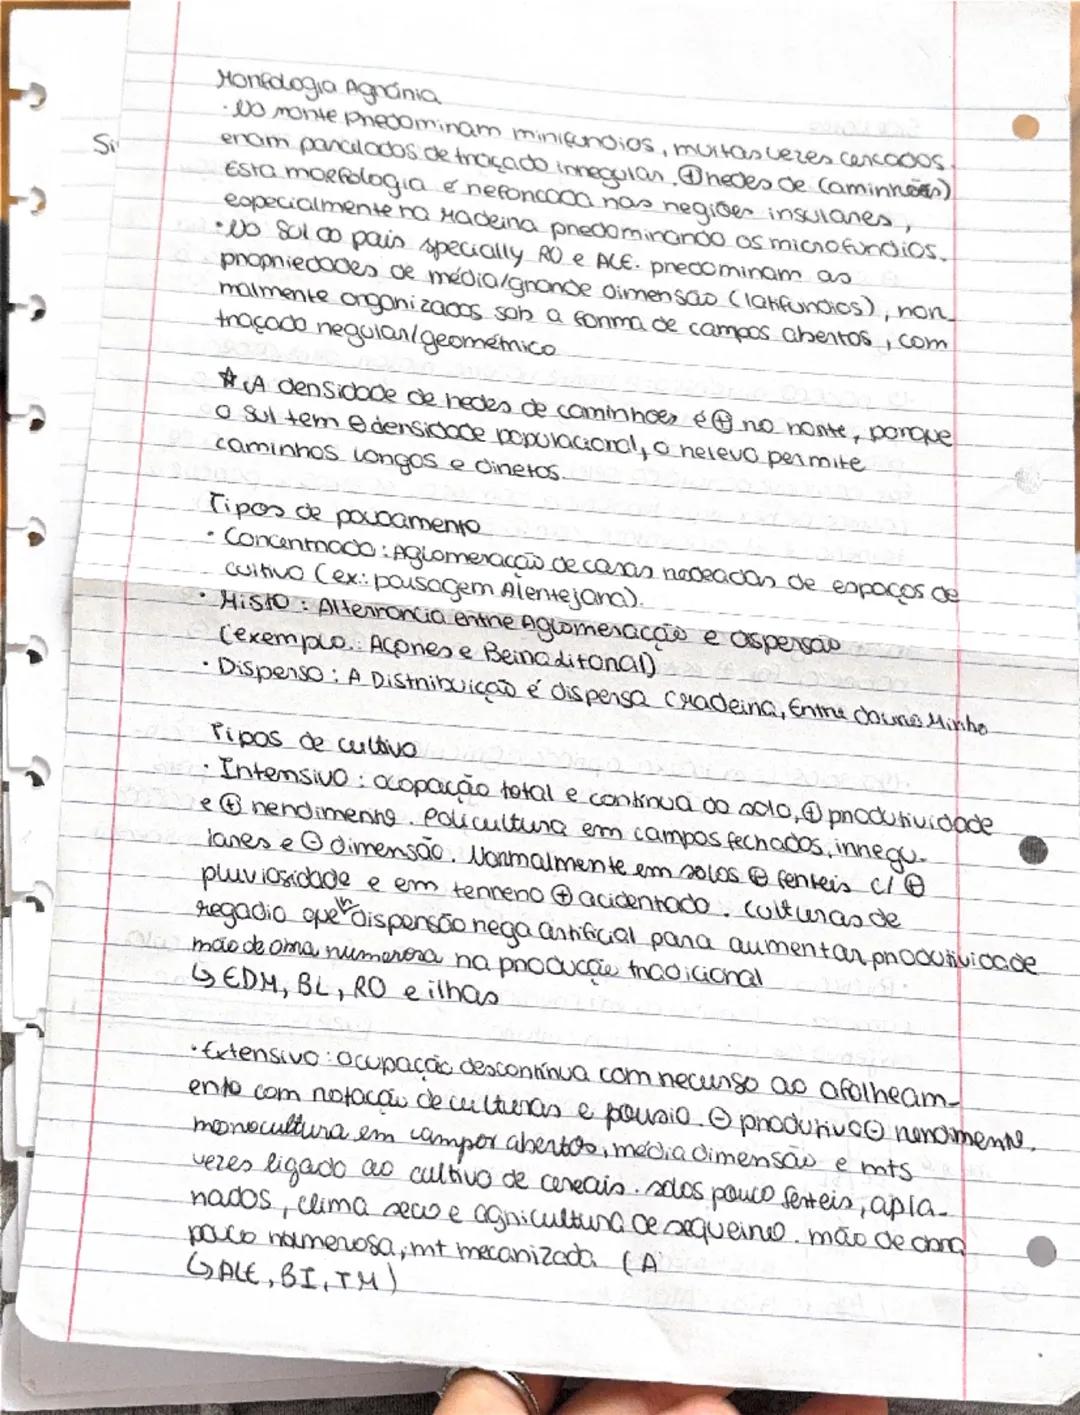 Morfologia Agrária
· No norte predominam minifundios, muitas vezes cercados.
eram parcelados de traçado irregular. ⊕ redes de caminhos)
Esta morfologia é reforçada nas regiões insulares,
especialmente na Madeira predominando os microfundios.
· No Sul do país specially RO e ALE. predominam as
propriedades de média/grande dimensão (latifundios), nor-
malmente organizados sob a forma de campos abertos, com
traçado regular/geométrico
☆ A densidade de redes de caminhos é ⊕ no norte, porque
o sul tem ⊖ densidade populacional, o relevo permite
caminhos longos e diretos.
Tipos de povoamento
· Concentrado: Aglomeracção de casas rodeadas de espaços de
cultivo (ex: paisagem Alentejana).
· Misto: Alternancia entre Aglomeracção e dispersão
(exemplo: Açores e Beira litoral)
· Disperso: A Distribuicção é dispersa (Madeira, Entre douro Minho
Si
Tipos de cultivo
· Intensivo: ocopacção total e continua do solo, ⊕ produtividade
e ⊕ rendimento. Policultura em campos fechados, irregu-
lares e ⊖ dimensão. Normalmente em solos ⊕ ferteis c/ ⊕
pluviosidade e em terreno ⊕ acidentado. Culturas de
regadio que dispersão rega artificial para aumentar produtividade
mão de obra numerosa na producção tradicional
↳ EDM, BL, RO e ilhas
· Extensivo: ocupação descontínua com recurso ao afolheam-
ento com rotação de culturas e pousio. ⊖ produtivo ⊖ rendimento.
monocultura em campos abertos, média dimensão e mts
vezes ligado ao cultivo de cereais. solos pouco ferteis, apla-
nados, clima seco e agricultura de sequeiro. mão de obra
pouco numerosa, mt mecanizada. (A
↳ ALE, BI, TM)